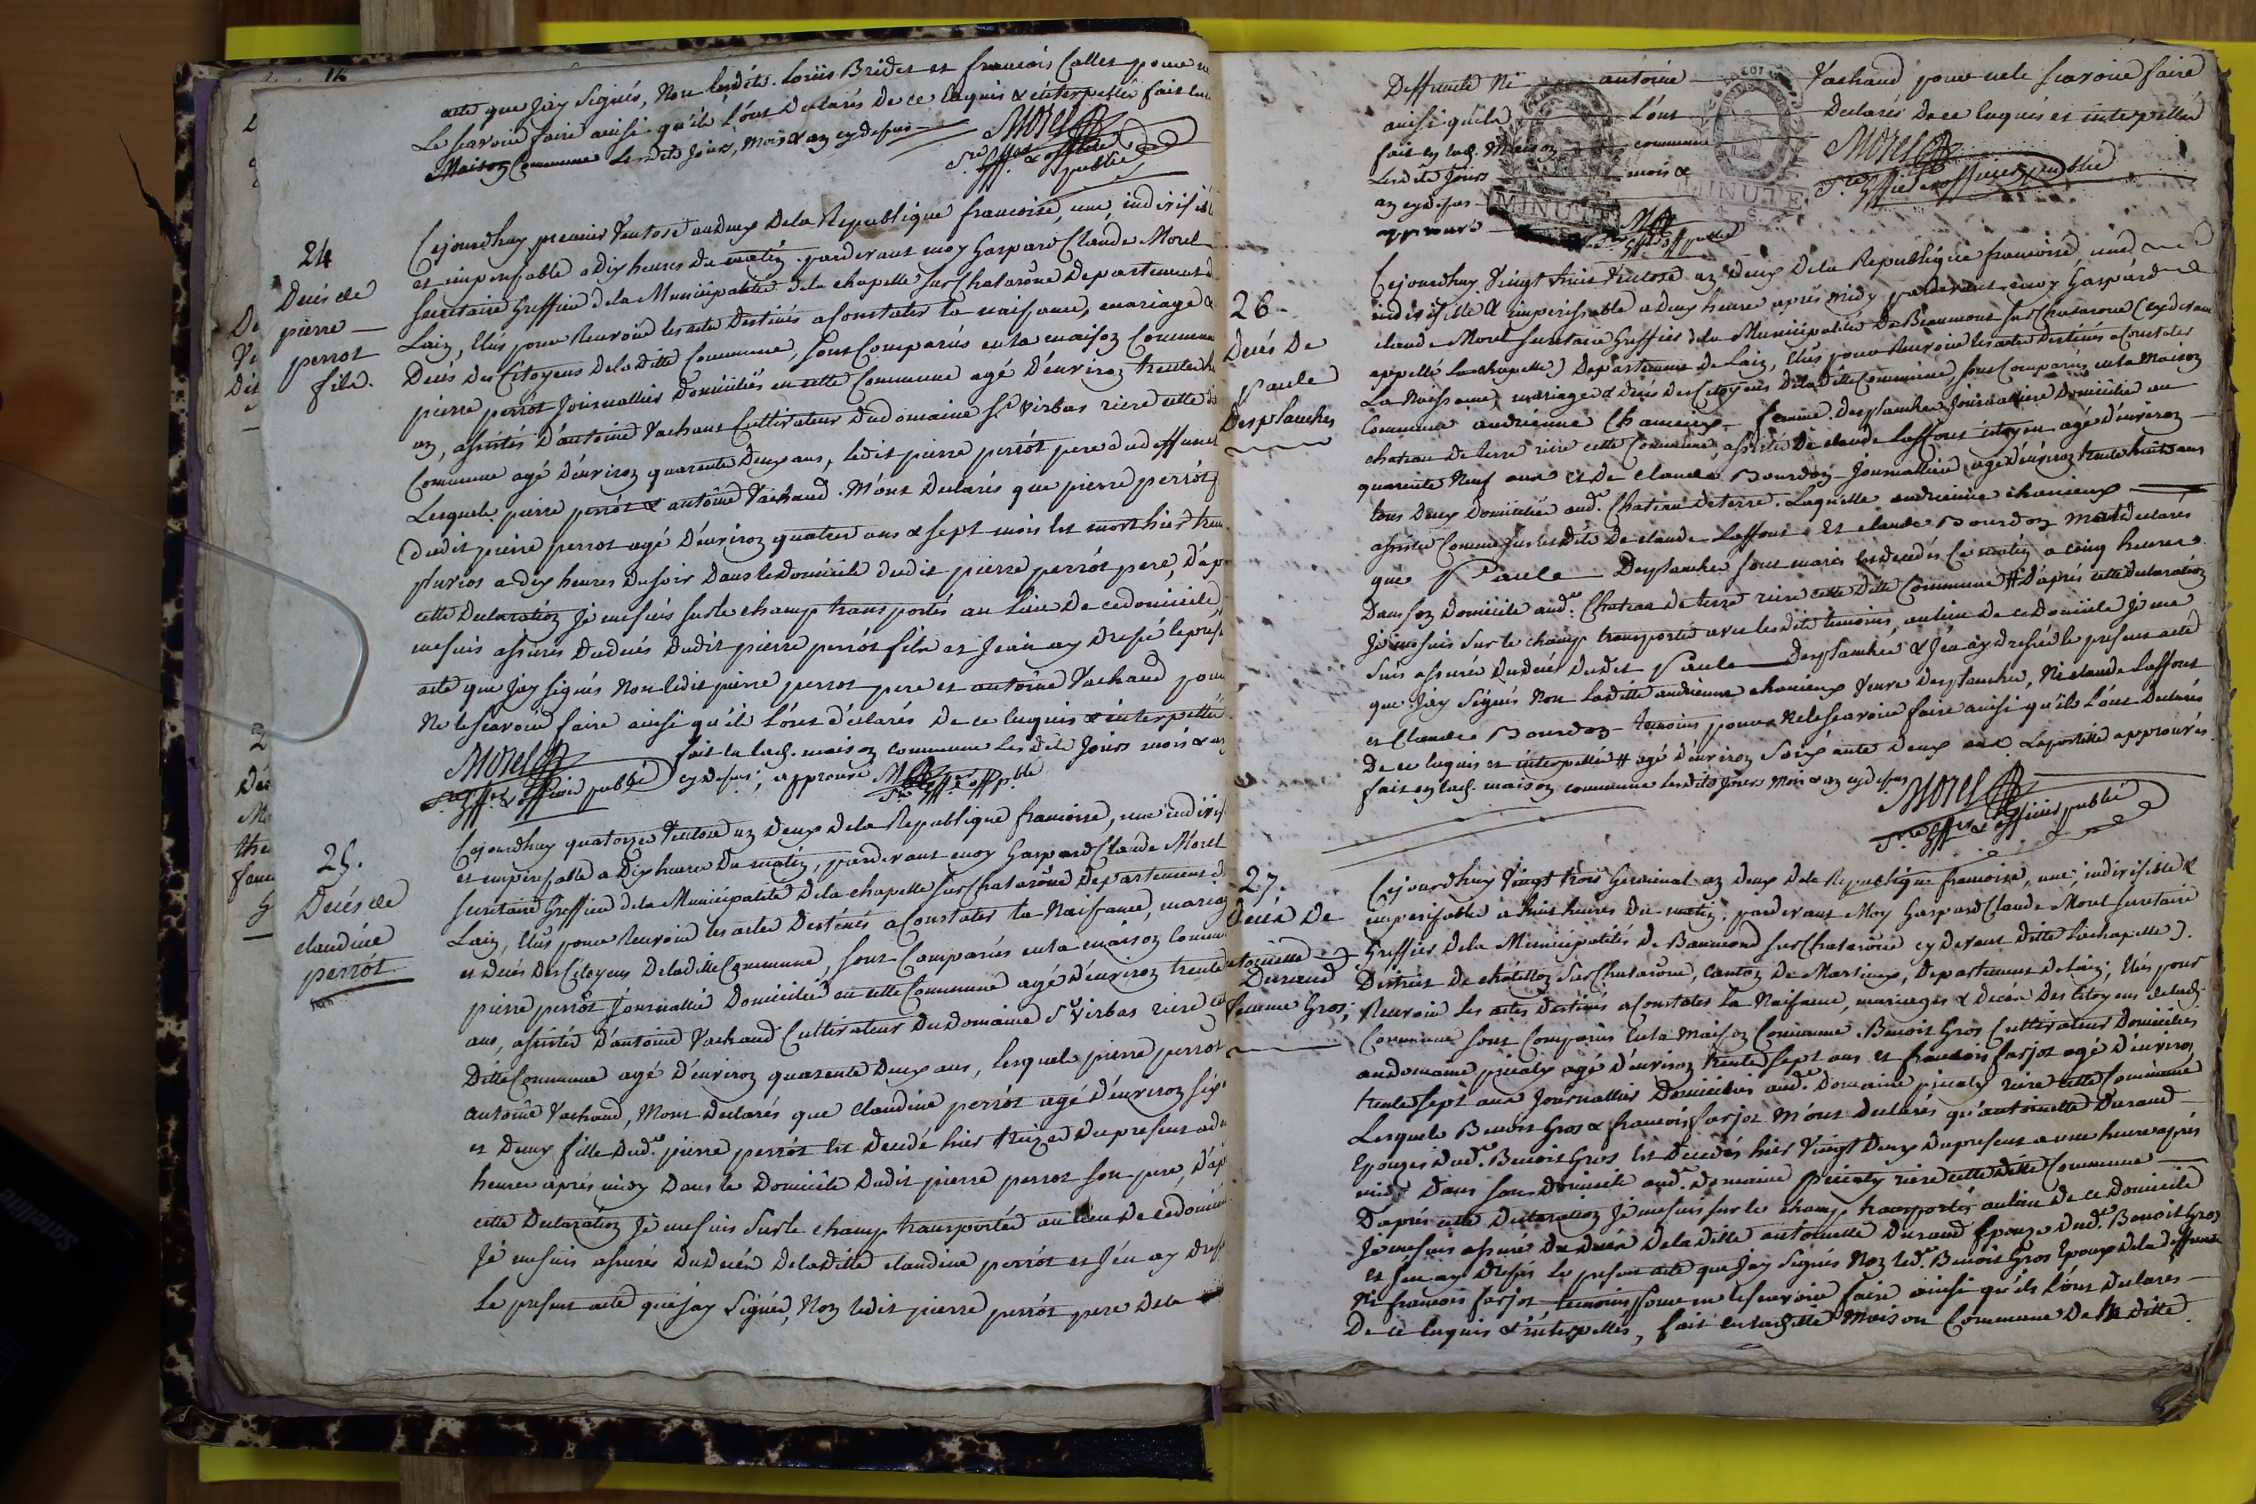 acte que Jay Signés, Non lesdits Loüis Bridet et francois Collet pour ne
Le scavoir faire ainsi qu'ils L'ont Declarés De ce Enquis & interpellés fait en la
Maison Commune Lesdits Jours, Mois & an cy dessus
Morel
S.re Gff.er & officier
public
24
Decés de
pierre
perrot
fils.
Cejourdhuy premier Ventose an deux De la Republique francoise, une, indivisible
et imperissable a Dix heures du matin. pardevant moy Gaspard Claude Morel
Secretaire Greffier de la Municipalité de la chapelle sur Chalarône Departement de
Lain, Elus pour Recevoir les actes Destinés a Constater la naissance, mariage &
Decés Des Citoyens De la ditte Commune, sont Comparus en la maison Commune
pierre perrot Journallier Domiciliés en cette Commune agé D'environ trente
an, assistés D'antoine Vachaud Cultivateur Du domaine S.t Virbas riere cette
Commune agé D'environ quarente Deux ans, ledit pierre perrot pere du deffunt
Lesquels pierre perrot & antoine Vachaud. M'ont Declarés que pierre perrot
dudit pierre perrot agé D'environ quatre ans & sept mois Est mort hier trente
pluvios a dix heures du soir Dans le Domicile dudit pierre perrot pere, D'après
cette Declaration Je me suis sur le champ transportés au Lieu De ce domicile,
me suis assurés Du decés Dudit pierre perrot fils et J'en ay Dressé le present
acte que Jay signés Non ledit pierre perrot pere et antoine Vachaud pour
Ne le scavoir faire ainsi qu'ils L'ont declarés De ce Enquis & interpellés
fait en lad. maison commune Lesdits Jours mois & an
Morel
S.re Gff.er & officier public
cy dessus; approuvé
S.re Gff.er off. p.blic
25.
Decés de
claudine
perrot
Cejourdhuy quatorze Ventose an Deux De la Republique francoise, une indivisible
et imperissable a Dix heures Du matin, pardevant moy Gaspard Claude Morel
Secretaire Greffier de la Municipalité De la chapelle sur Chalarône Departement de
Lain, Elus pour Recevoir les actes Destinés a Constater la Naissance, mariage
et decés Des Citoyens De la ditte Commune, sont Comparus en la maison Commune
pierre perrot Journallié Domiciliés en cette Commune agé D'environ trente
ans, assistés D'antoine Vachaud Cultivateur Du Domaine S.t Virbas riere
Ditte Commune agé D'environ quarente Deux ans, lesquels pierre perrot
antoine Vachaud, M'ont Declarés que claudine perrot agé D'environ six
et Demy fille Dud. pierre perrot Est Decedé hier treize Du present a
heures aprés midy Dans le Domicile Dudit pierre perrot son pere, D'après
cette Declaration Je me suis sur le champ transportés au lieu De ce domicile
Je me suis assurés Du Decés De la ditte claudine perrot et J'en ay Dressé
Le present acte que Jay Signés, Non ledit pierre perrot pere De la
Deffunte Ni antoine Vachaud pour ne le scavoir faire
ainsi qu'ils L'ont Declarés De ce Enquis et interpellés
fait en lad. Maison commune
Lesdits Jours mois &
an cy dessus
approuvé
MINUTE
MINUTE
Morel
S.re Gffier & officier public
S.re Gff.er off. public
26
Decés De
Paule
Desplanches
Cejourdhuy Vingt huit Ventose an Deux De la Republique francoise, une
indivisible & imperissable a deux heure aprés midy pardevant moy Gaspard
claude Morel Secretaire Greffier de la Municipalité De Beaumont sur Chalarone (cy devant
appellé Lachapelle) Departement De Lain, Elus pour Recevoir les actes Destinés a Constater
La Naissance, mariage & decés Des Citoyens De la ditte Commune, sont Comparus en la Maison
Commune andrienne Chanieux femme Desplanches Journaliere Domicilié au
chateau De terre riere cette Commune, assistée De claude Laffont citoyen agé d'environ
quarente Neuf ans et De claude Bourdon Journallier agé d'environ trente huit ans
tous Deux Domiciliés aud. Chateau De terre. Laquelle andrienne chanieux
assistée Comme sus est dit De claude Laffont et claude Bourdon M'at declarés
que Paule Desplanches sont maris Est decedés Ce matin a cinq heures
Dans son Domicile aud. Chateau De terre riere cette ditte Commune # D'aprés cette declaration
Je me suis sur le champ transportés avec lesdits temoins, au lieu De ce Domicile Je me
suis assurés Du decés Dudit Paule Desplanches & J'en ay dressés le present acte
que Jay Signés Non Laditte andrienne chanieux Veuve Desplanches, Ni claude Laffont
et Claude Bourdon temoins pour Ne le scavoir faire ainsi qu'ils L'ont Declarés
De ce Enquis et interpellés # agé D'environ Soixante Deux ans Lapostille approuvés.
fait en lad. maison commune Lesdits Jours Mois & an cy dessus
Morel
S.re Gffier & officier public
27.
Decés De
antoinette
Durand
femme Gros;
Cejourdhuy Vingt trois Germinal an deux De la Republique francoise, une indivisible &
imperissable a huit heures Du matin. pardevant Moy Gaspard Claude Morel Secretaire
Greffier De la Municipalités de Beaumond sur Chalarône cy devant Ditte Lachapelle).
District De chatillon sur Chalarône, canton De Marlieux, Departement De Lain; Elus pour
Recevoir les actes Destinés a Constater La Naissance, mariages & Decés Des Citoyens de lad.
Commune sont Comparus En la Maison Commune. Benoit Gros Cultivateur Domiciliés
au domaine picaty agé D'environ trente sept ans et francois farjot agé d'environ
trente sept ans Journallier Domiciliés aud. Domaine picaty riere cette Commune
Lesquels Benoit Gros & francois farjot M'ont declarés qu'antoinette Durand
Epouzes Dud. Benoit Gros Est Decedés hier Vingt Deux Du present a une heure aprés
midy Dans son Domicile aud. Domaine Picaty riere cette ditte Commune
D'aprés cette Declaration Je me suis sur le champ transportés au lieu De ce Domicile
Je me suis assurés Du Decés De la ditte antoinette Durand Epouze Dud. Benoit Gros
et J'en ay Dressés Le present acte que Jay Signés Non led. Benoit Gros Epoux De la deffunte
Ni francois farjot temoins pour ne le scavoir faire ainsi qu'ils L'ont Declarés
De ce Enquis & interpellés, fait en laditte Maison Commune De la ditte